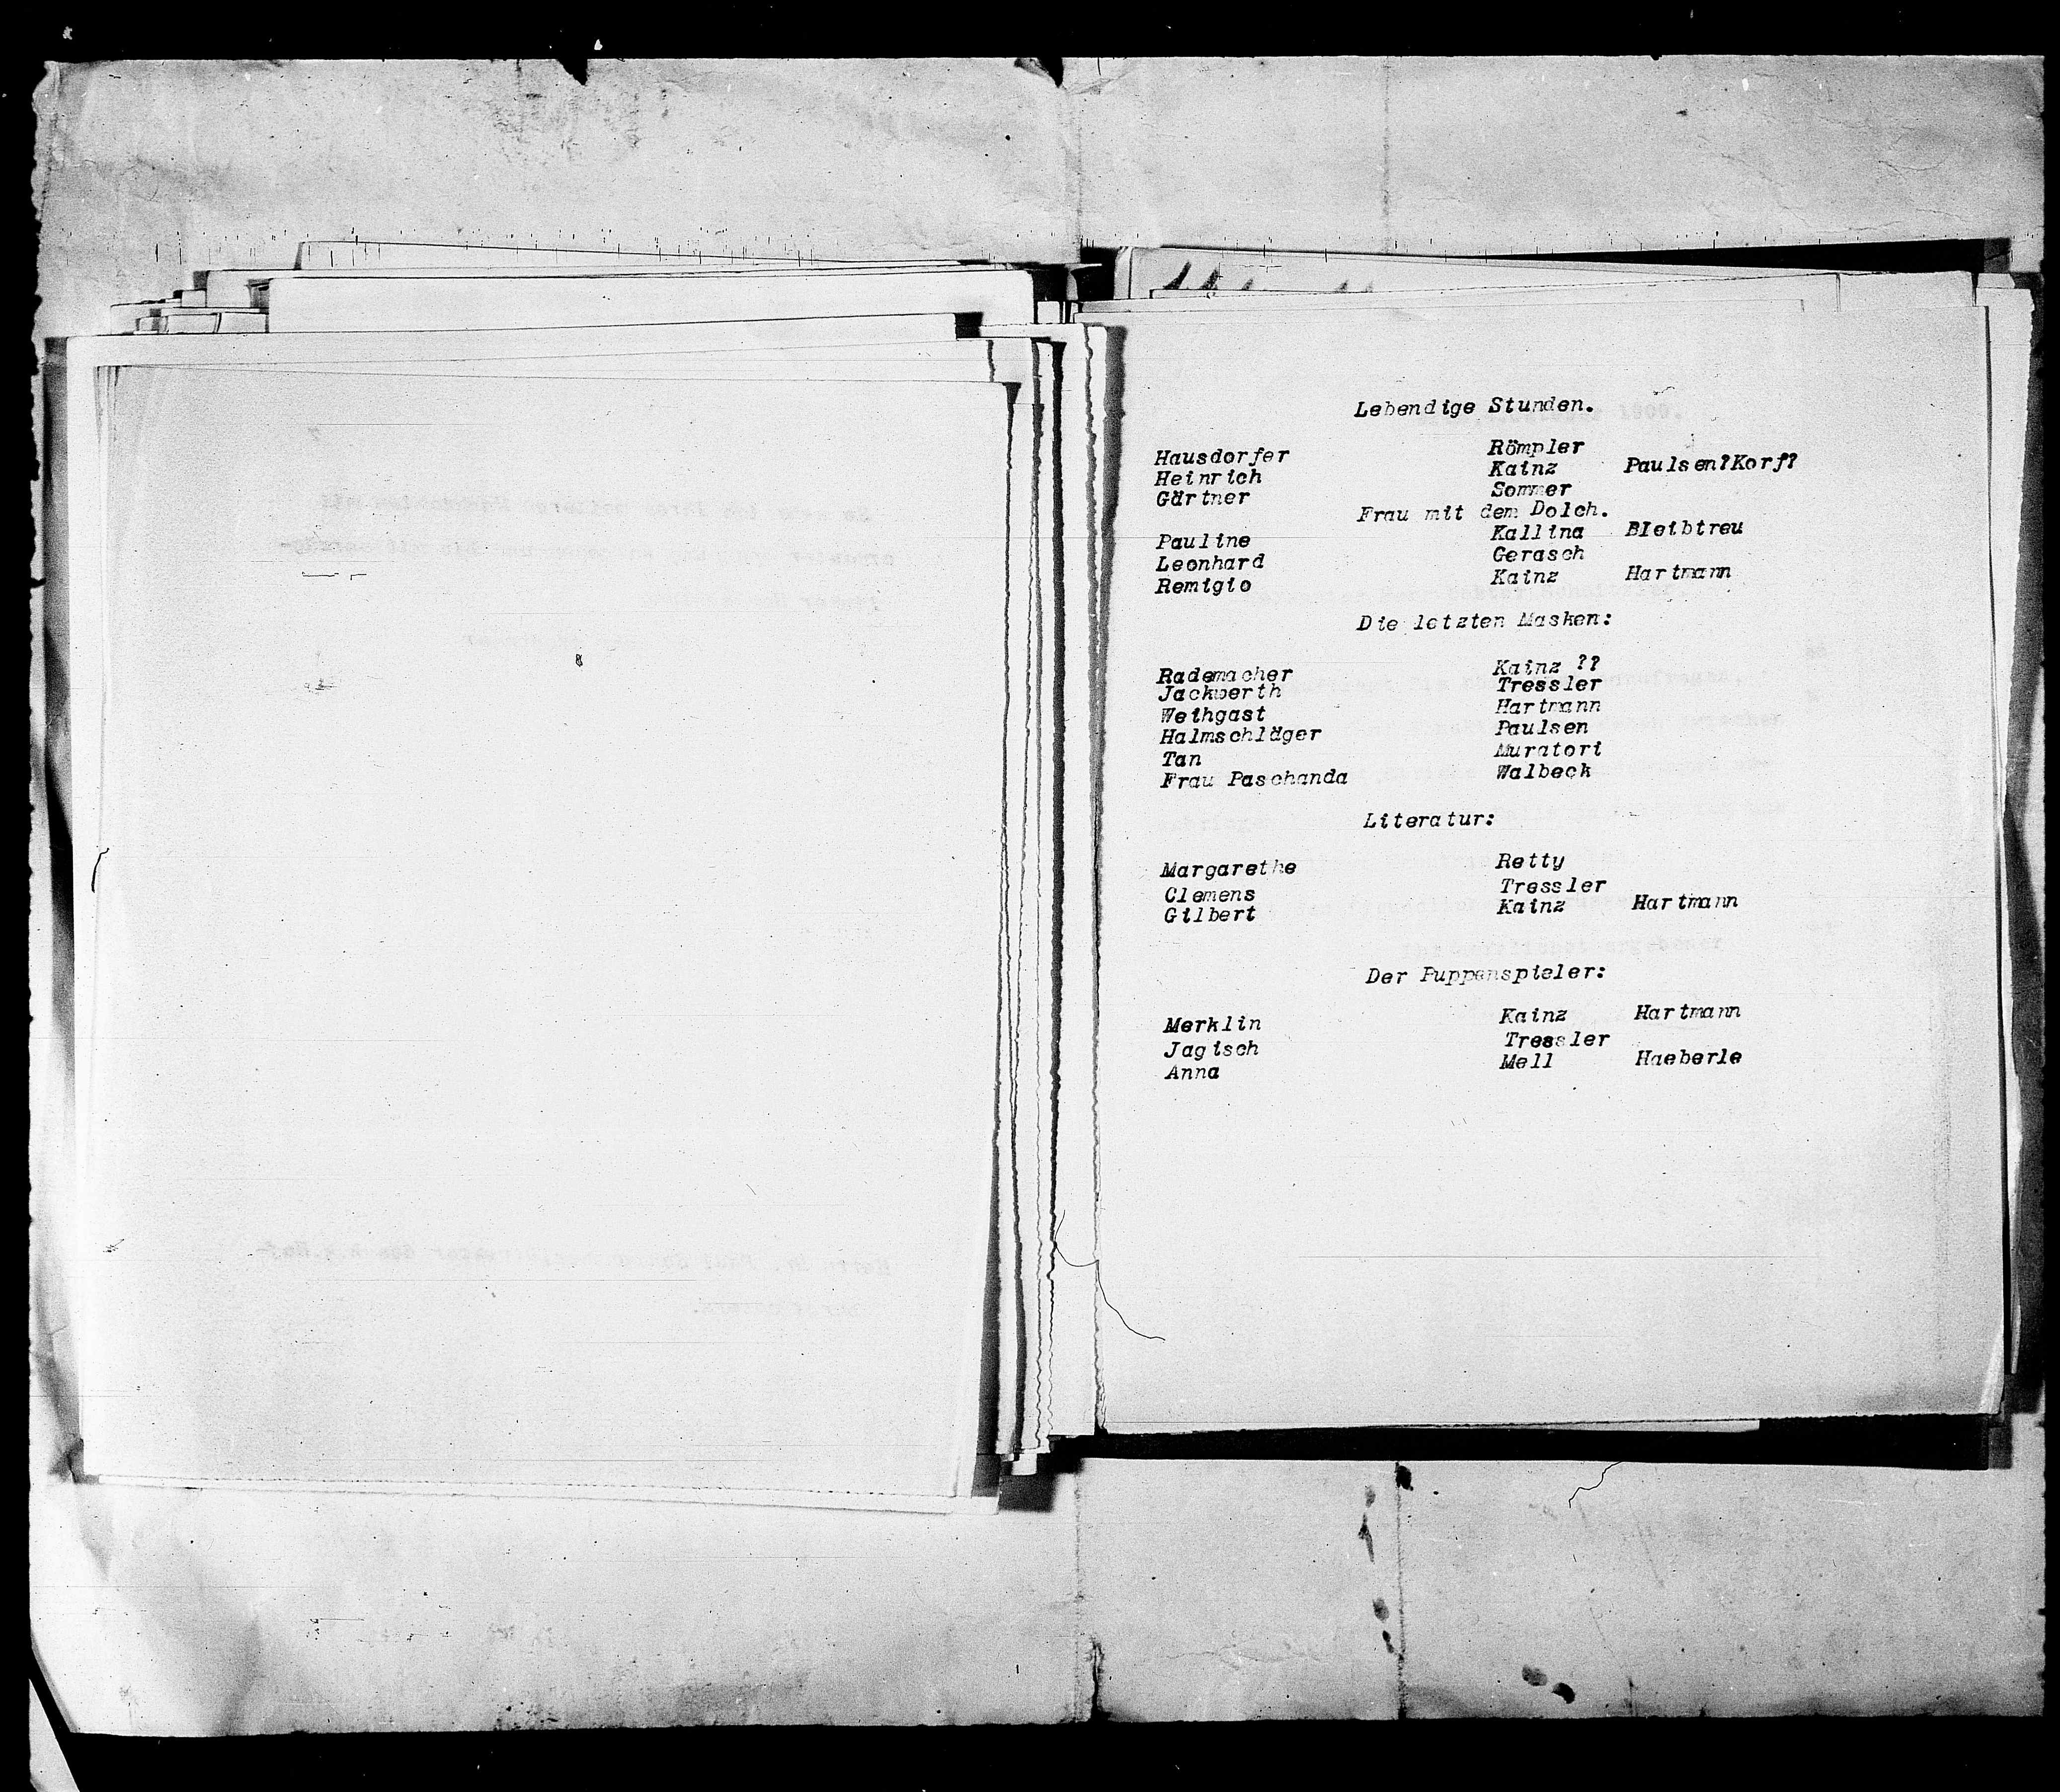 Lebendige Stunden.
Hausdorfer Römpler
Heinrich Kainz Paulsen?Korf?
Gärtner Sommer
Frau mit dem Dolch.
Pauline Kallina Bleibtreu
Leonhard Gerasch
Remigio Kainz Hartmann
Die letzten Masken:
Rademacher Kainz ??
Jackwerth Tressler
Weihgast Hartmann
Halmschläger Paulsen
Tan Muratori
Frau Paschanda Walbeck
Literatur:
Margarethe Retty
Clemens Tressler
Gilbert Kainz Hartmann
Der Puppenspieler:
Merklin Kainz Hartmann
Jagisch Tressler
Anna Mell Haeberle